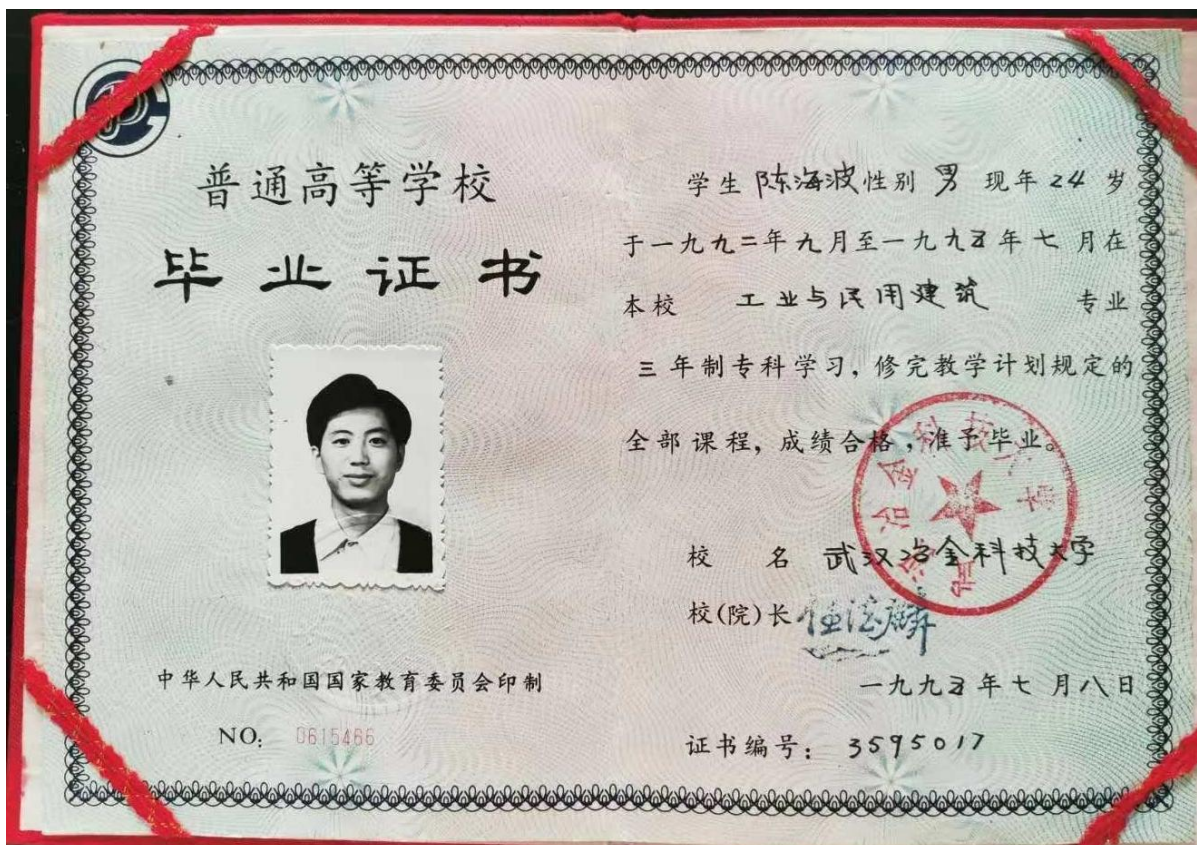 普通高等学校
毕业证书
中华人民共和国国家教育委员会印制
NO: 0615466
学生 陈海波 性别 男 现年 24 岁
于一九九二年九月至一九九五年七月在
本校 工业与民用建筑 专业
三年制专科学习，修完教学计划规定的
全部课程，成绩合格，准予毕业。
校 名 武汉冶金科技大学
校(院)长
一九九五年七月八日
证书编号：3595017
武汉冶金科技大学